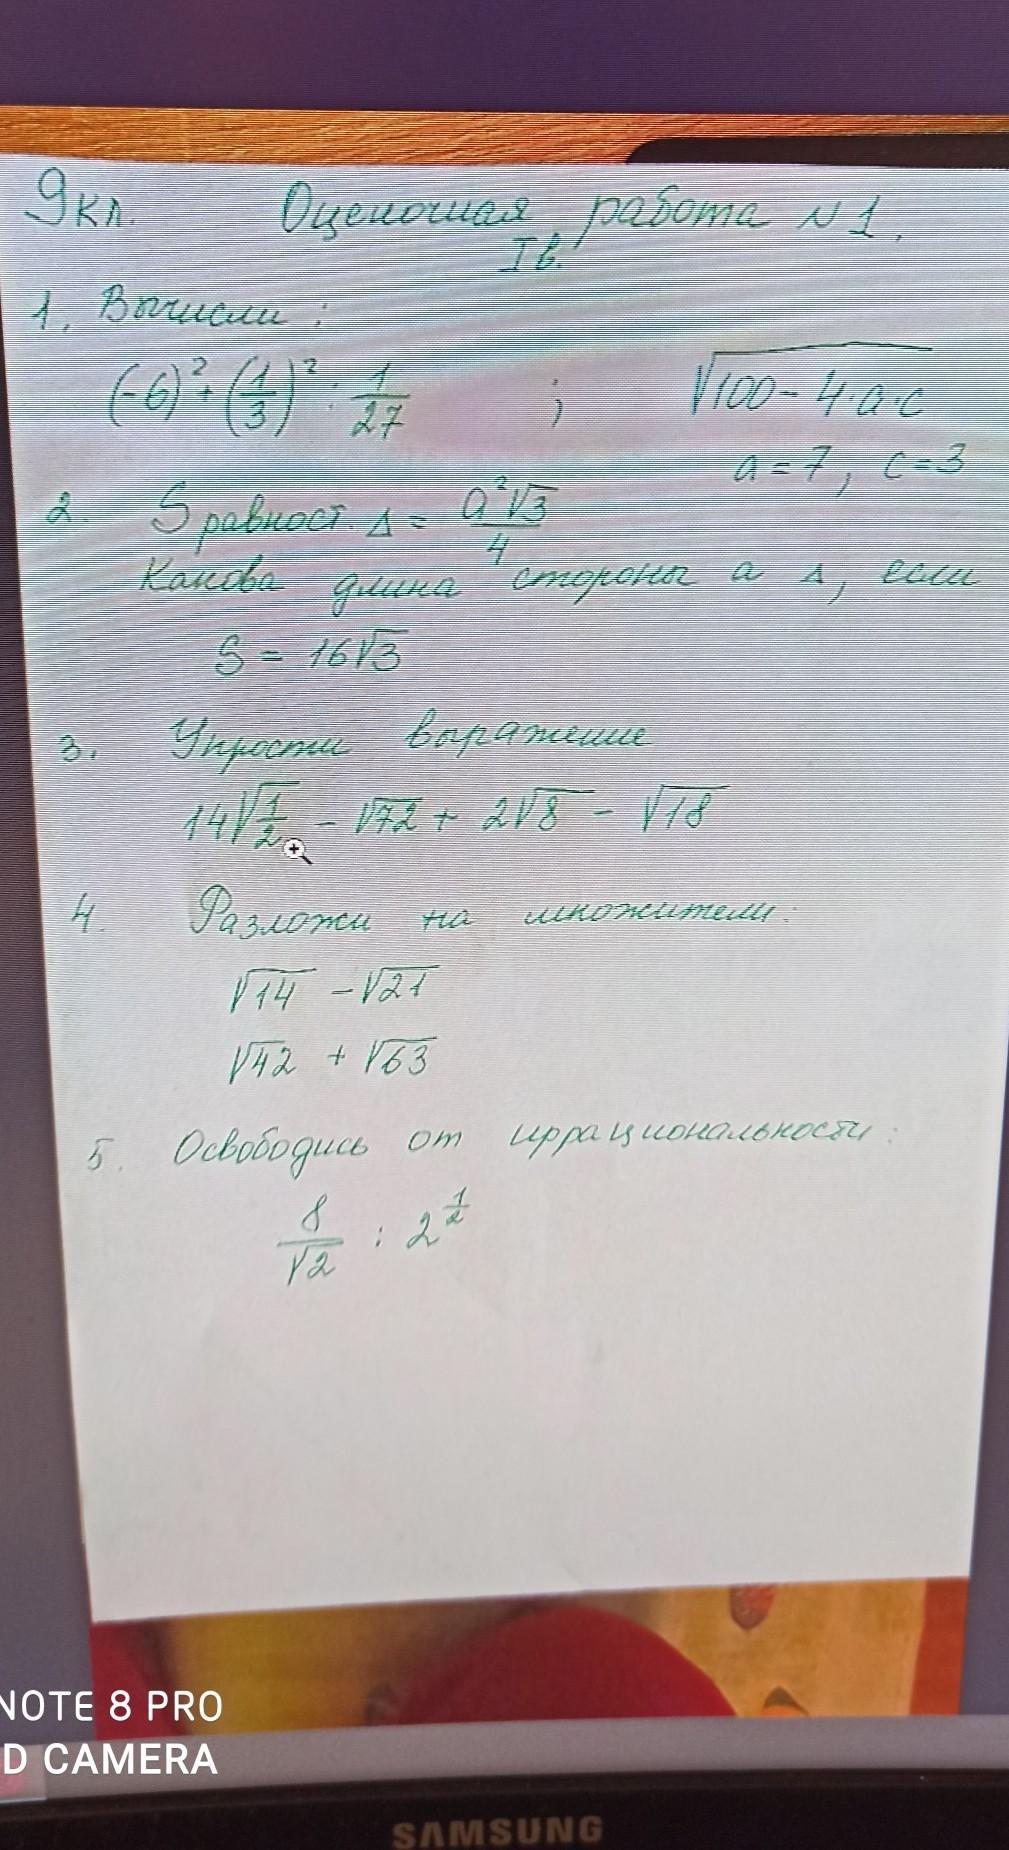 9кл. Оценочная работа №1.
I в.
1. Вычисли:
(-6)² + (1/3)² : 1/27 ; √100-4·a·c
a=7, c=3
2. S равност. Δ = a²√3/4
Какова длина стороны a Δ, если
S = 16√3
3. Упрости выражение
14√1/2 - √72 + 2√8 - √18
4. Разложи на множители:
√14 - √21
√42 + √63
5. Освободись от иррациональности:
8/√2 : 2^1/2
NOTE 8 PRO
D CAMERA
SAMSUNG